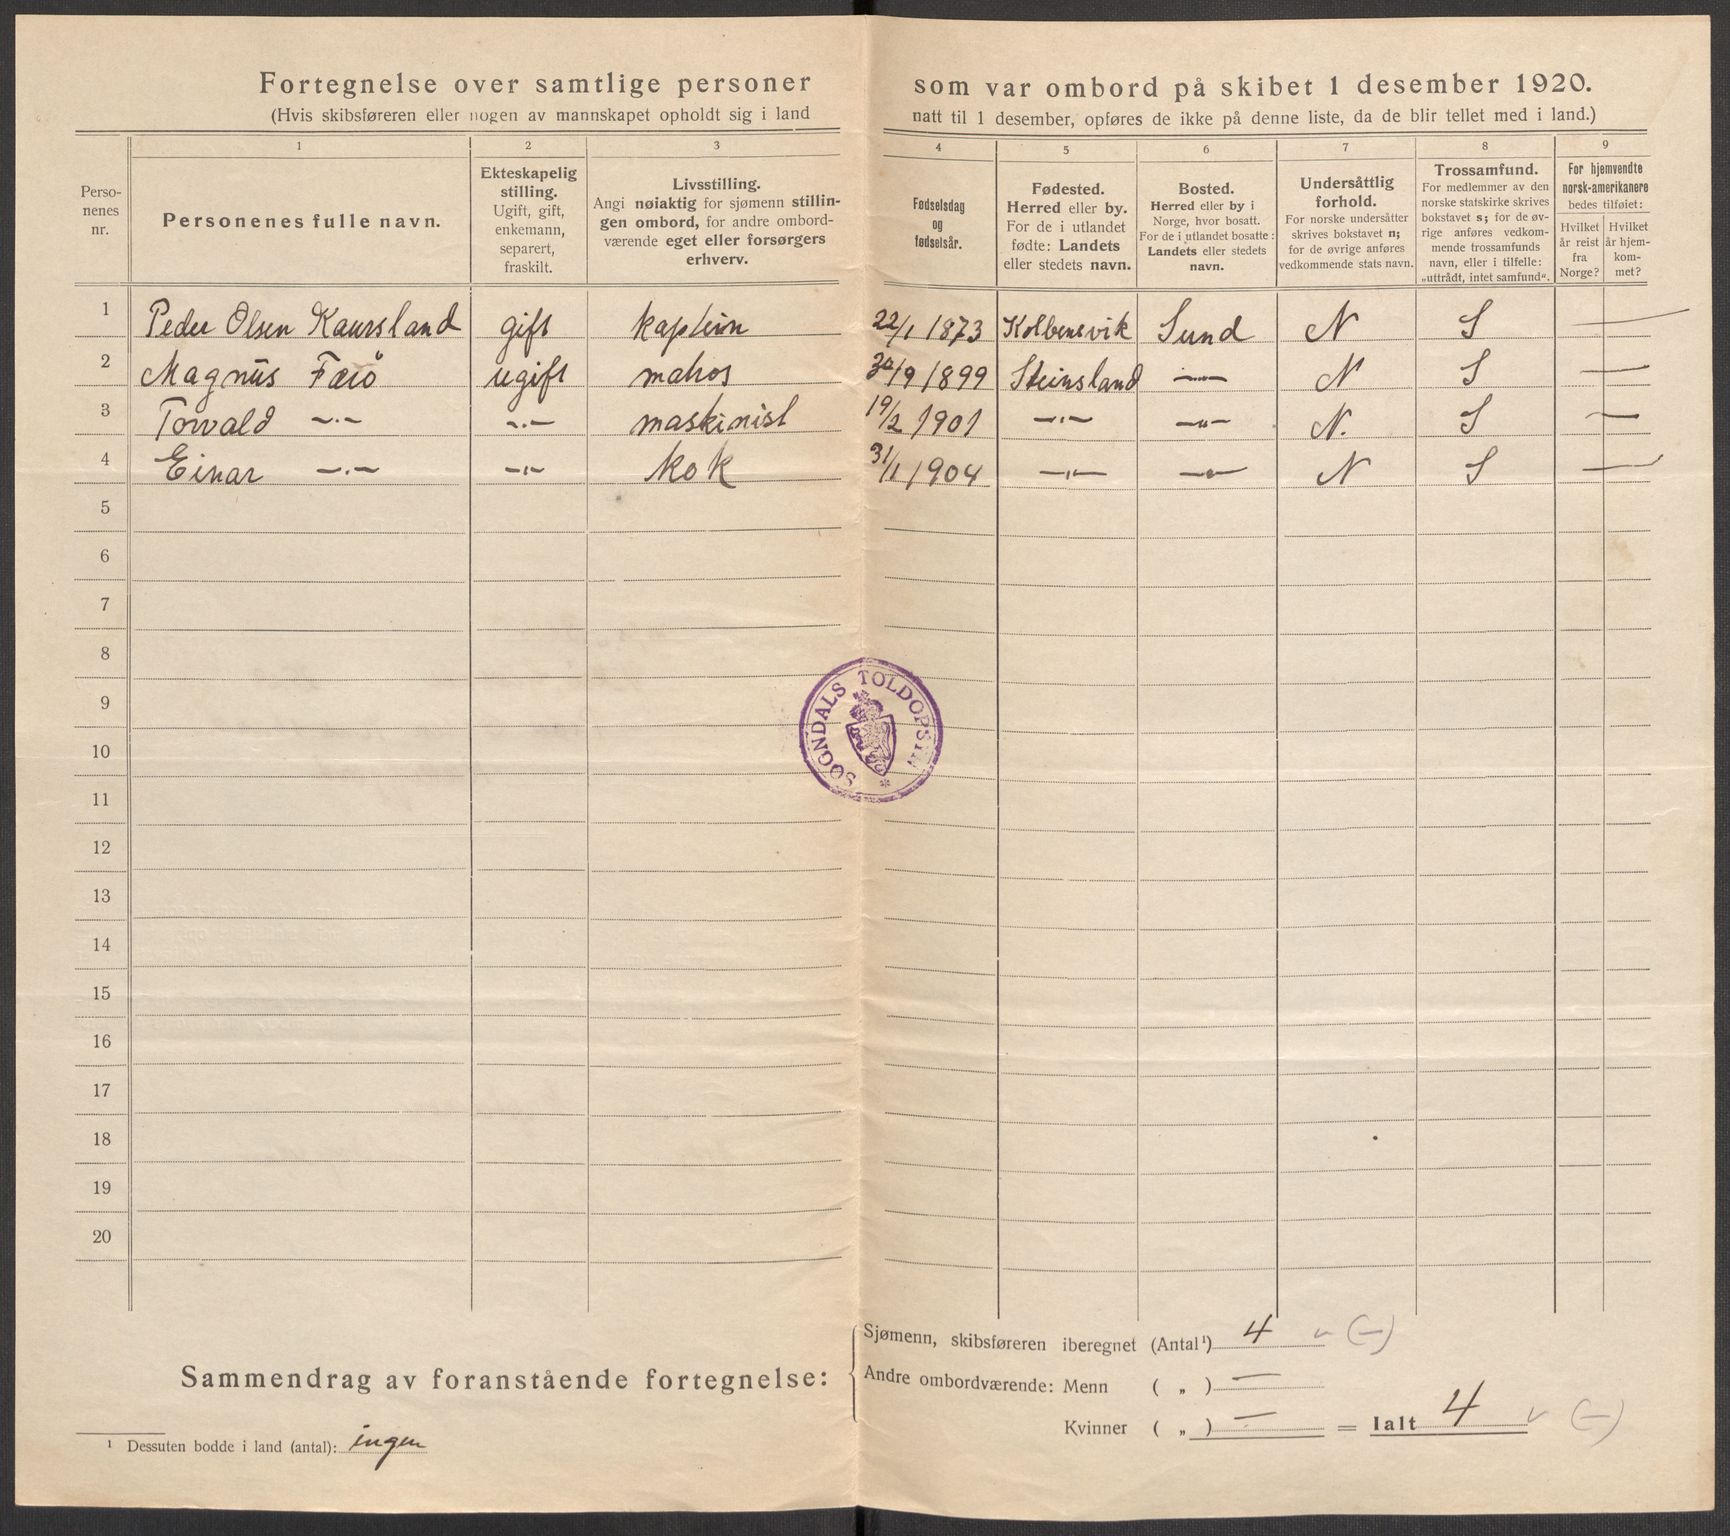 Fortegnelse over samtlige personer som var ombord på skibet 1 desember 1920.
(Hvis skibsføreren eller nogen av mannskapet opholdt sig i land natt til 1 desember, opføres de ikke på denne liste, da de blir tellet med i land.)
1 2 3 4 5 6 7 8 9
Perso-
nenes
nr.
Personenes fulle navn.
Ekteskapelig
stilling.
Ugift, gift,
enkemann,
separert,
fraskilt.
Livsstilling.
Angi nøiaktig for sjømenn stillin-
gen ombord, for andre ombord-
værende eget eller forsørgers
erhverv.
Fødselsdag
og
fødselsår.
Fødested.
Herred eller by.
For de i utlandet
fødte: Landets
eller stedets navn.
Bosted.
Herred eller by i
Norge, hvor bosatt.
For de i utlandet bosatte:
Landets eller stedets
navn.
Undersåttlig
forhold.
For norske undersåtter
skrives bokstavet n;
for de øvrige anføres
vedkommende stats navn.
Trossamfund.
For medlemmer av den
norske statskirke skrives
bokstavet s; for de øv-
rige anføres vedkom-
mende trossamfunds
navn, eller i tilfelle:
„uttrådt, intet samfund“.
For hjemvendte
norsk-amerikanere
bedes tilføiet:
Hvilket
år reist
fra
Norge?
Hvilket
år hjem-
kom-
met?
1 Peder Olsen Kausland gift kaptein 22/1 1873 Kolbensvik Sund N S —
2 Magnus Færö ugift matros 30/9 1899 Steinsland —"— N S —
3 Torvald —"— —"— maskinist 19/2 1901 —"— —"— N. S —
4 Einar —"— —"— kok 31/1 1904 —"— —"— N S —
5
6
7
8
9
10
11
12
13
14
15
16
17
18
19
20
SOGNDALS TOLDOPSYN *
Sammendrag av foranstående fortegnelse:
Sjømenn, skibsføreren iberegnet (Antal¹) 4 (—)
Andre ombordværende: Menn ( „ ) —
Kvinner ( „ ) — = Ialt 4 (—)
¹ Dessuten bodde i land (antal): ingen